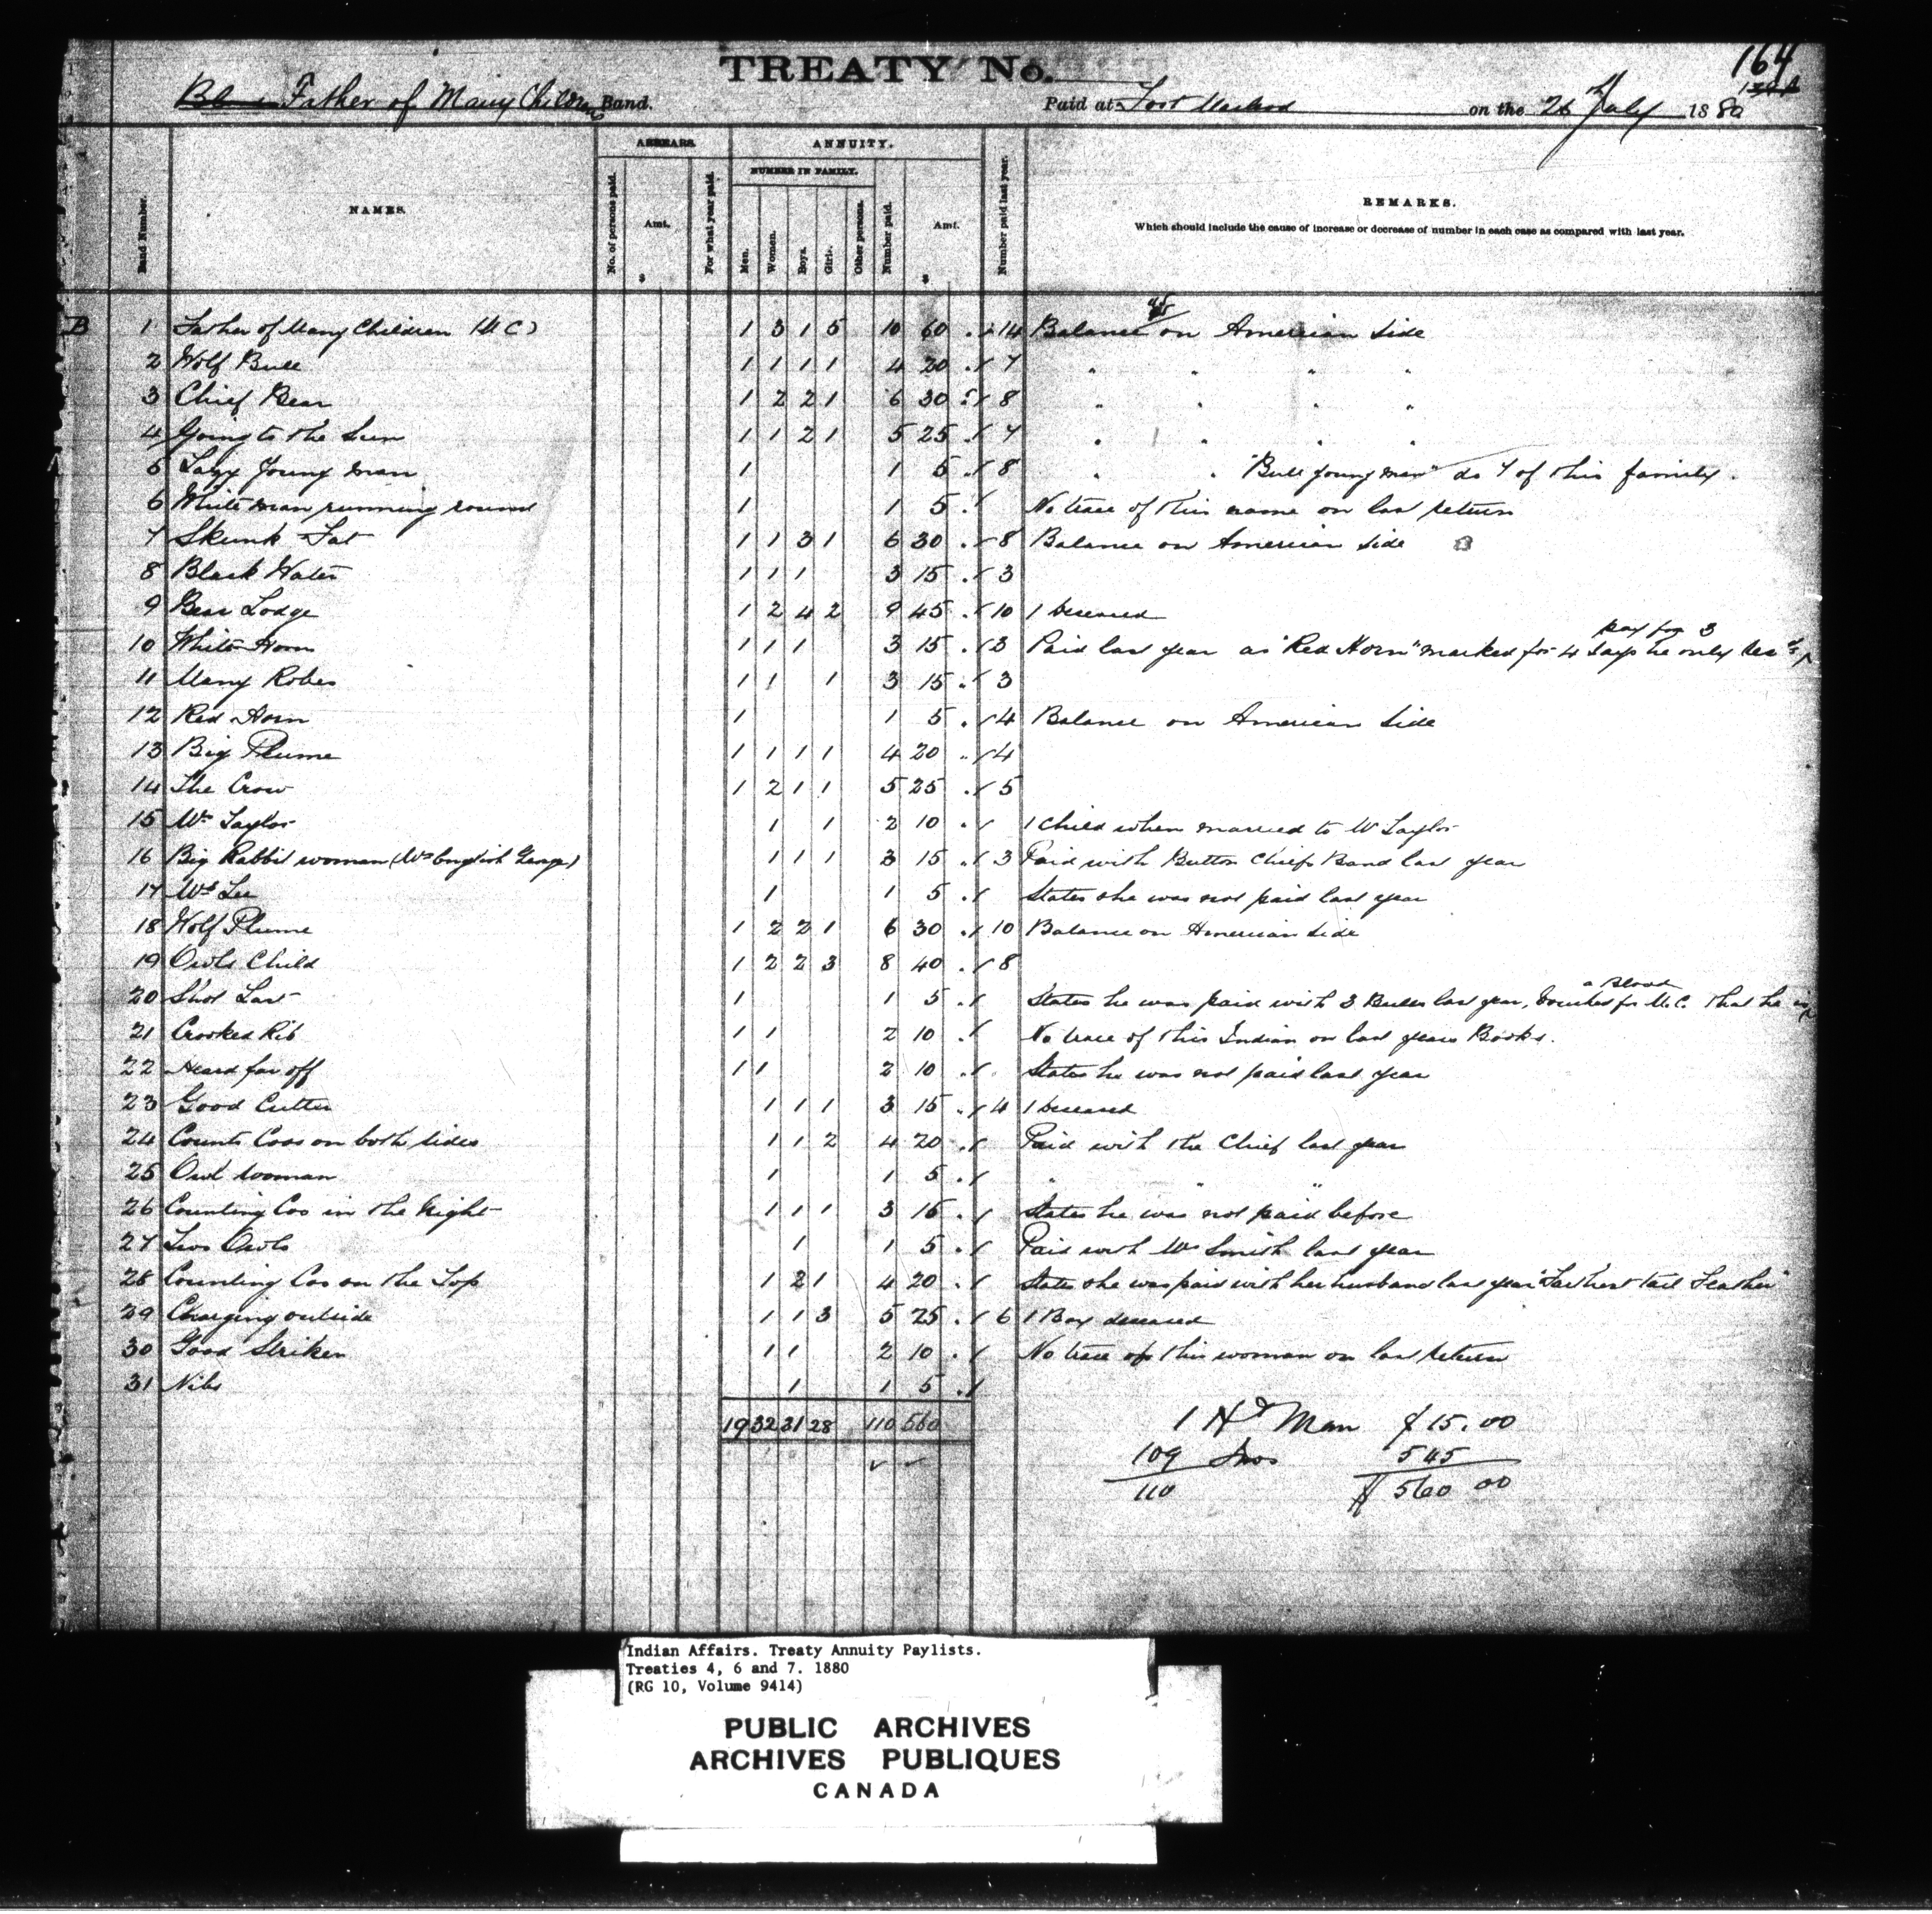 164
TREATY No.
Father of Many Children Band. Paid at Fort Macleod on the 26 July 1880
ARREARS. ANNUITY.
NUMBER IN FAMILY.
Band Number. NAMES. No. of persons paid. Amt. $ For what year paid. Men. Women. Boys. Girls. Other persons. Number paid. Amt. $ Number paid last year. REMARKS.
Which should include the cause of increase or decrease of number in each case as compared with last year.
B 1 Father of Many Children (M C) 1 3 1 5 10 60 14 Balance on American Side
2 Wolf Bull 1 1 1 1 4 20 7 " " " "
3 Chief Bear 1 2 2 1 6 30 8 " " " "
4 Going to the Sun 1 1 2 1 5 25 7 " " " "
5 Lazy Young man 1 1 5 8 " " "Bull Young Man" do 7 of this family.
6 White man running round 1 1 5 No trace of this name on last return
7 Skunk Fat 1 1 3 1 6 30 8 Balance on American Side
8 Black Water 1 1 1 3 15 3
9 Bear Lodge 1 2 4 2 9 45 10 1 deceased
10 White Horn 1 1 1 3 15 3 Paid last year as "Red Horn" marked for 4 Says he only pay for 3
11 Many Robes 1 1 1 3 15 3
12 Red Horn 1 1 5 4 Balance on American Side
13 Big Plume 1 1 1 1 4 20 4
14 The Crow 1 2 1 1 5 25 5
15 Mrs Taylor 1 1 2 10 1 Child when married to W Taylor
16 Big Rabbit woman (Mrs English George) 1 1 1 3 15 3 Paid with Button Chiefs Band last year
17 Mrs Lee 1 1 5 States she was not paid last year
18 Wolf Plume 1 2 2 1 6 30 10 Balance on American Side
19 Owls Child 1 2 2 3 8 40 8
20 Shot Last 1 1 5 States he was paid with 3 Bulls last year, Vouched for M.C. that he is a Blood
21 Crooked Rib 1 1 2 10 No trace of this Indian on last years Books.
22 Heard far off 1 1 2 10 States he was not paid last year
23 Good Cutter 1 1 1 3 15 4 1 deceased
24 Counts Coos on both sides 1 1 2 4 20 Paid with the Chief last year
25 Owl woman 1 1 5 " " "
26 Counting Coo in the Night 1 1 1 3 15 States he was not paid before
27 Two Owls 1 1 5 Paid with Mrs Smith last year
28 Counting Coo on the Top 1 2 1 4 20 States she was paid with her husband last year "Farthest tail Feather"
29 Charging outside 1 1 3 5 25 6 1 Boy deceased
30 Good Striker 1 1 2 10 No trace of this woman on last return
31 Nibs 1 1 5
19 32 31 28 110 560
1 Hd Man $15.00
109 Inds 545
110 $560 00
Indian Affairs. Treaty Annuity Paylists.
Treaties 4, 6 and 7. 1880
(RG 10, Volume 9414)
PUBLIC ARCHIVES
ARCHIVES PUBLIQUES
CANADA